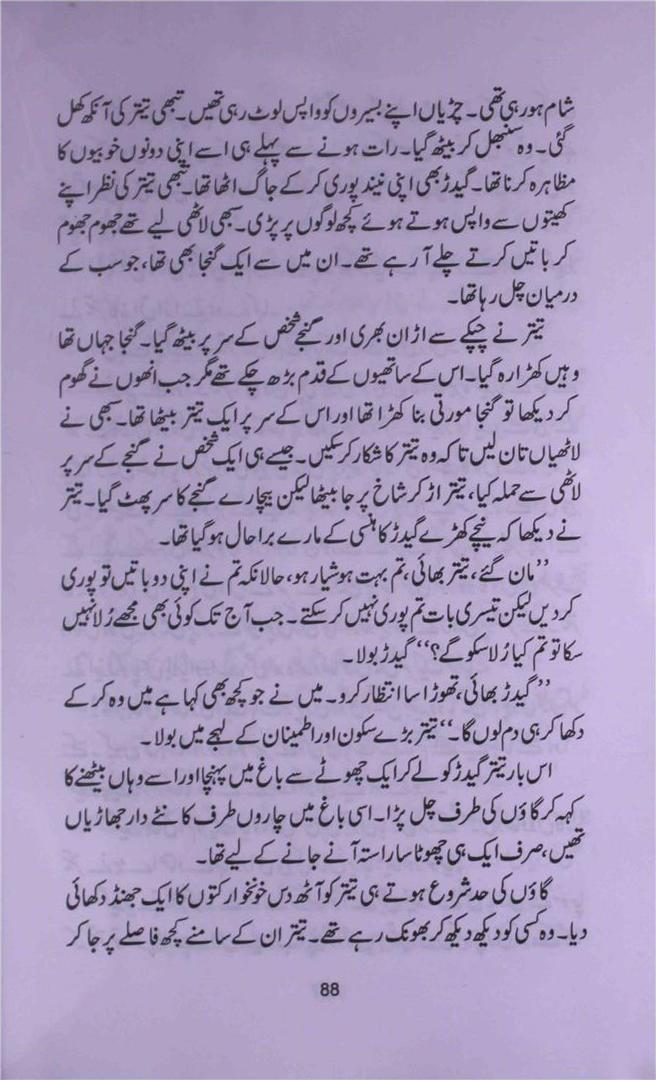 شام ہو رہی تھی۔ چڑیاں اپنے بسیروں کو واپس لوٹ رہی تھیں۔ تبھی تیتر کی آنکھ کھل
گئی۔ وہ سنبھل کر بیٹھ گیا۔ رات ہونے سے پہلے ہی اسے اپنی دونوں خوبیوں کا
مظاہرہ کرنا تھا۔ گیدڑ بھی اپنی نیند پوری کر کے جاگ اٹھا تھا۔ تبھی تیتر کی نظر اپنے
کھیتوں سے واپس ہوتے ہوئے کچھ لوگوں پر پڑی۔ سبھی لاٹھی لیے تھے جھوم جھوم
کر باتیں کرتے چلے آ رہے تھے۔ ان میں سے ایک گنجا بھی تھا، جو سب کے
درمیان چل رہا تھا۔
تیتر نے چپکے سے اڑان بھری اور گنجے شخص کے سر پر بیٹھ گیا۔ گنجا جہاں تھا
وہیں کھڑا رہ گیا۔ اس کے ساتھیوں کے قدم بڑھ چکے تھے مگر جب انھوں نے گھوم
کر دیکھا تو گنجا مورتی بنا کھڑا تھا اور اس کے سر پر ایک تیتر بیٹھا تھا۔ سبھی نے
لاٹھیاں تان لیں تاکہ وہ تیتر کا شکار کر سکیں۔ جیسے ہی ایک شخص نے گنجے کے سر پر
لاٹھی سے حملہ کیا، تیتر اڑ کر شاخ پر جا بیٹھا لیکن بیچارے گنجے کا سر پھٹ گیا۔ تیتر
نے دیکھا کہ نیچے کھڑے گیدڑ کا ہنسی کے مارے برا حال ہو گیا تھا۔
”مان گئے، تیتر بھائی، تم بہت ہوشیار ہو، حالانکہ تم نے اپنی دو باتیں تو پوری
کر دیں لیکن تیسری بات تم پوری نہیں کر سکتے۔ جب آج تک کوئی بھی مجھے رُلا نہیں
سکا تو تم کیا رُلا سکو گے؟“ گیدڑ بولا۔
”گیدڑ بھائی، تھوڑا سا انتظار کرو۔ میں نے جو کچھ بھی کہا ہے میں وہ کر کے
دکھا کر ہی دم لوں گا۔“ تیتر بڑے سکون اور اطمینان کے لہجے میں بولا۔
اس بار تیتر گیدڑ کو لے کر ایک چھوٹے سے باغ میں پہنچا اور اسے وہاں بیٹھنے کا
کہہ کر گاؤں کی طرف چل پڑا۔ اسی باغ میں چاروں طرف کانٹے دار جھاڑیاں
تھیں، صرف ایک ہی چھوٹا سا راستہ آنے جانے کے لیے تھا۔
گاؤں کی حد شروع ہوتے ہی تیتر کو آٹھ دس خونخوار کتوں کا ایک جھنڈ دکھائی
دیا۔ وہ کسی کو دیکھ دیکھ کر بھونک رہے تھے۔ تیتر ان کے سامنے کچھ فاصلے پر جا کر
88